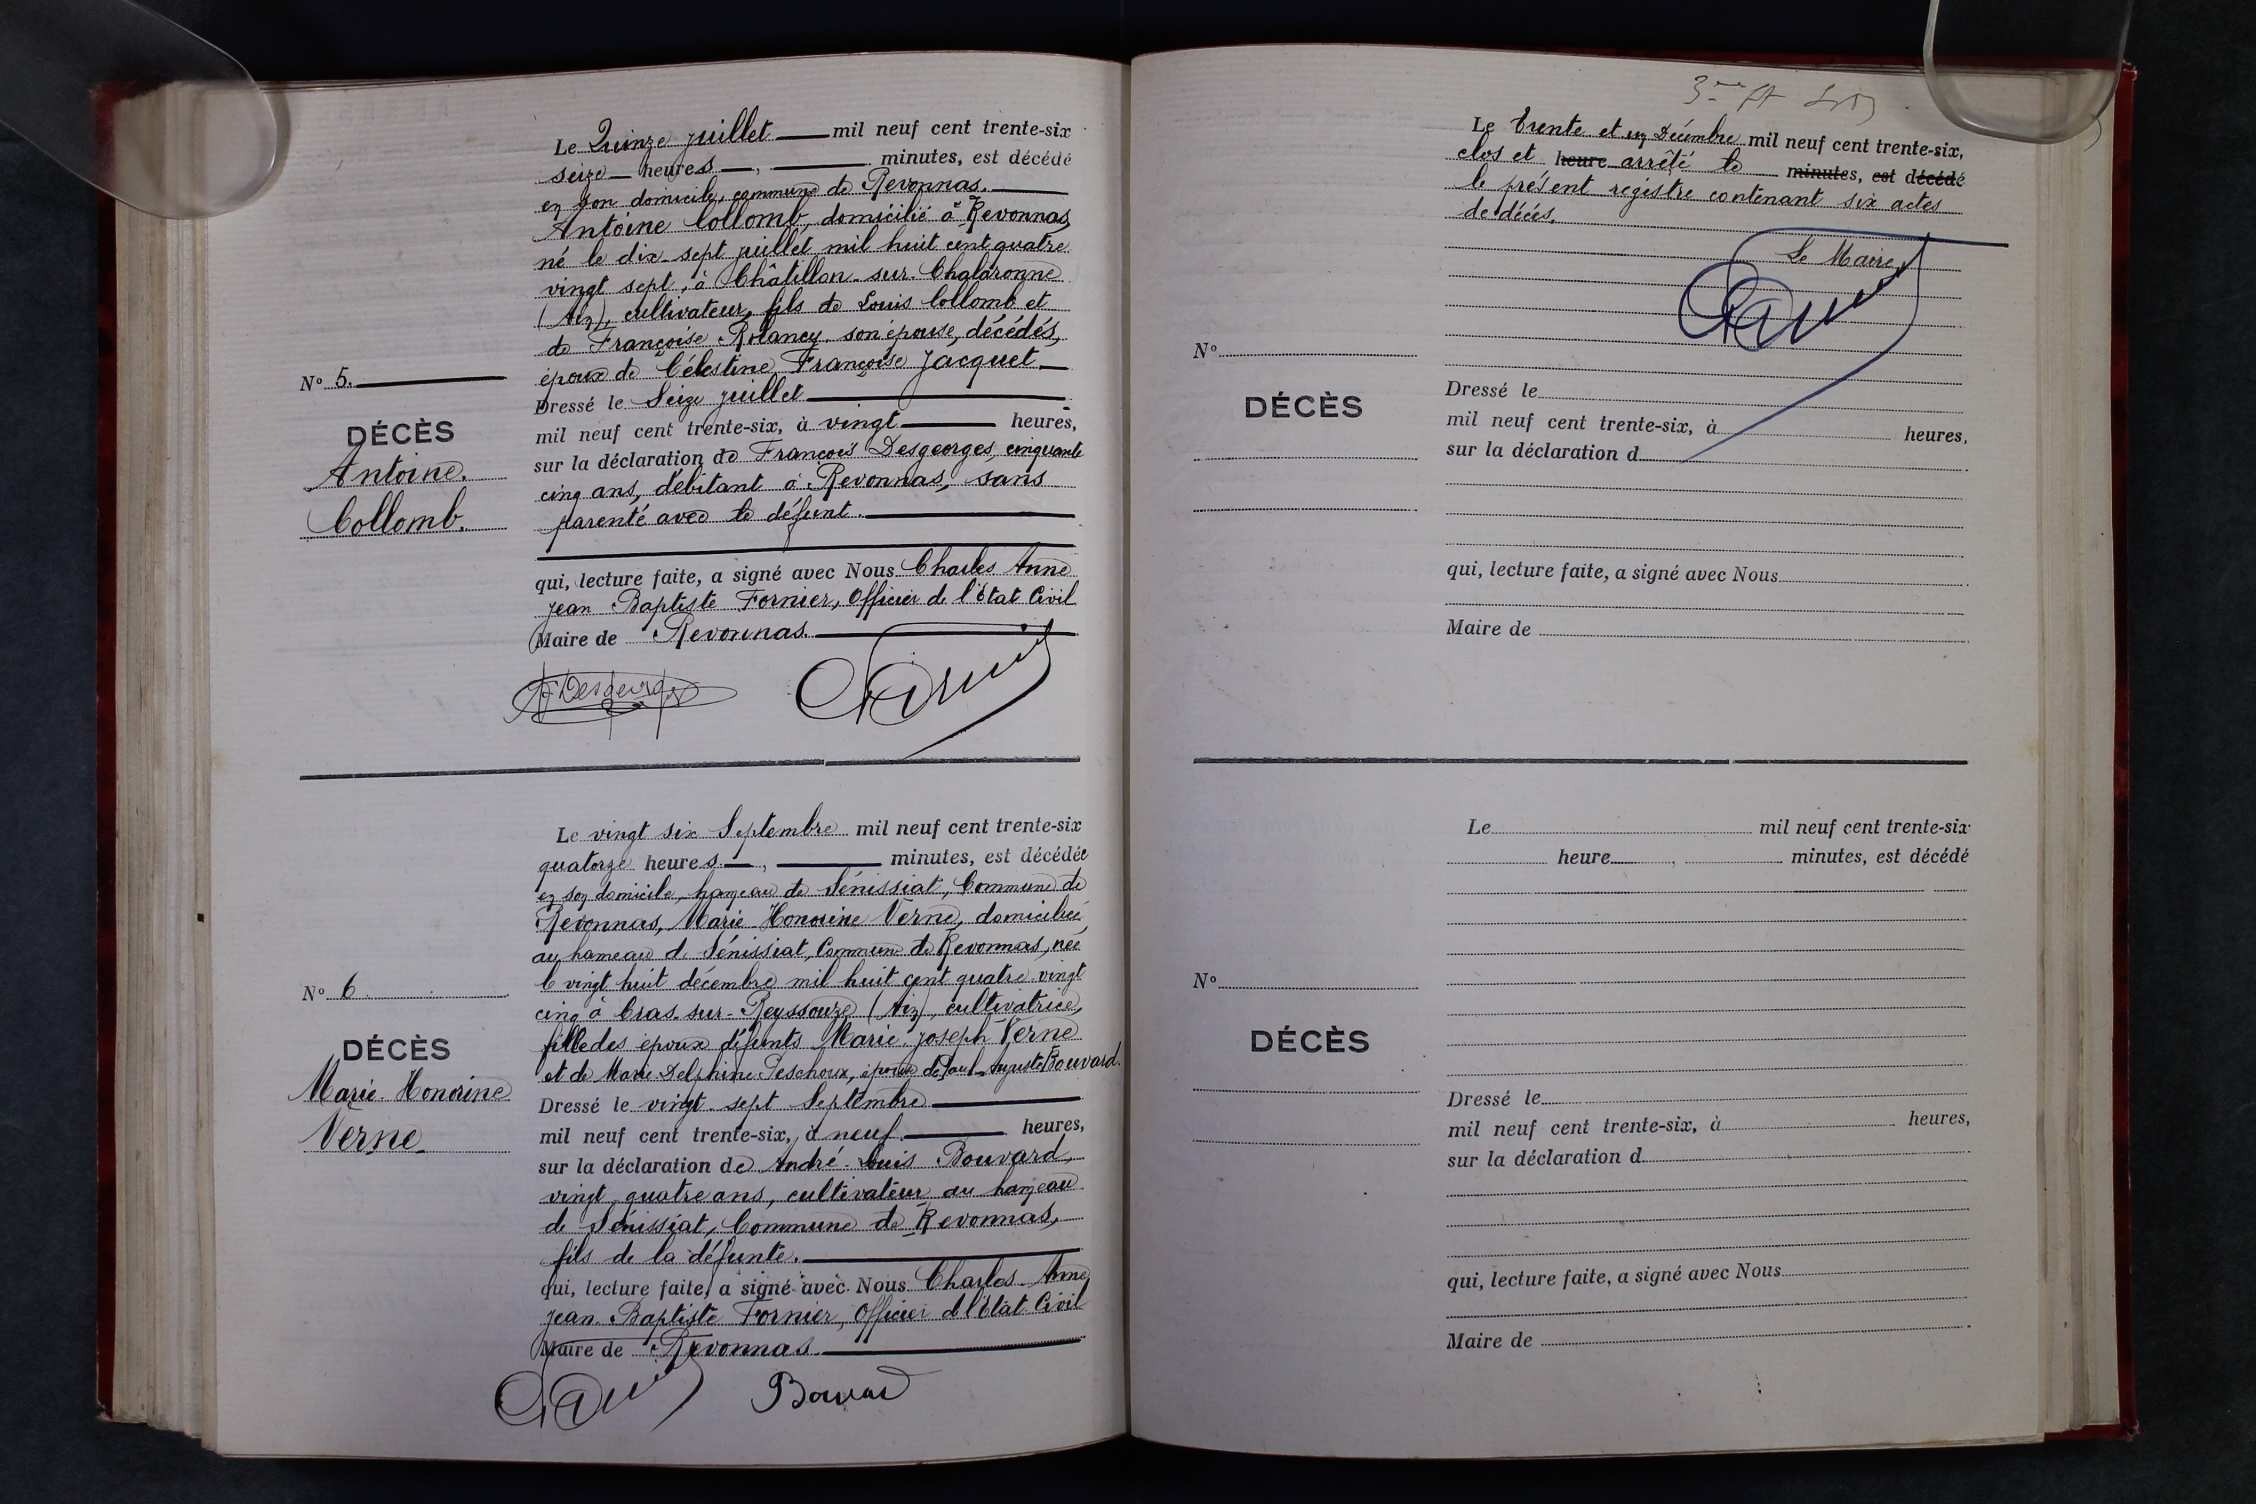 Le Quinze juillet mil neuf cent trente-six
seize heures, minutes, est décédé
en son domicile, commune de Revonnas.
Antoine Collomb, domicilié à Revonnas
né le dix-sept juillet mil huit cent quatre
vingt sept, à Châtillon-sur-Chalaronne
(Ain), cultivateur, fils de Louis Collomb et
de Françoise Rolancy son épouse, décédés,
époux de Célestine Françoise Jacquet
N° 5.
DÉCÈS
Antoine.
Collomb.
Dressé le Seize juillet
mil neuf cent trente-six, à vingt heures,
sur la déclaration de François Desgeorges, cinquante
cinq ans, débitant à Revonnas, sans
parenté avec le défunt.
qui, lecture faite, a signé avec Nous Charles Anne
Jean Baptiste Fornier, Officier de l'État Civil
Maire de Revonnas.
F Desgeorges
Le vingt six Septembre mil neuf cent trente-six
quatorze heures, minutes, est décédée
en son domicile, hameau de Sénissiat, Commune de
Revonnas, Marie Honorine Verne, domiciliée
au hameau de Sénissiat, Commune de Revonnas, née
le vingt huit décembre mil huit cent quatre-vingt
cinq à Cras-sur-Reyssouze (Ain), cultivatrice,
fille des époux défunts Marie Joseph Verne
et de Marie Delphine Peschoux, épouse de Paul-Auguste Bouvard.
N° 6
DÉCÈS
Marie Honorine
Verne
Dressé le vingt sept Septembre
mil neuf cent trente-six, à neuf heures,
sur la déclaration de André Louis Bouvard,
vingt quatre ans, cultivateur au hameau
de Sénissiat, Commune de Revonnas,
fils de la défunte.
qui, lecture faite, a signé avec Nous Charles Anne
Jean Baptiste Fornier, Officier de l'État Civil
Maire de Revonnas.
Bouvard
Le trente et un Décembre mil neuf cent trente-six,
clos et heure arrêté le minutes, est décédé
le présent registre contenant six actes
de décés.
Le Maire,
N°
DÉCÈS
Dressé le
mil neuf cent trente-six, à heures,
sur la déclaration d
qui, lecture faite, a signé avec Nous
Maire de
Le mil neuf cent trente-six
heure, minutes, est décédé
N°
DÉCÈS
Dressé le
mil neuf cent trente-six, à heures,
sur la déclaration d
qui, lecture faite, a signé avec Nous
Maire de